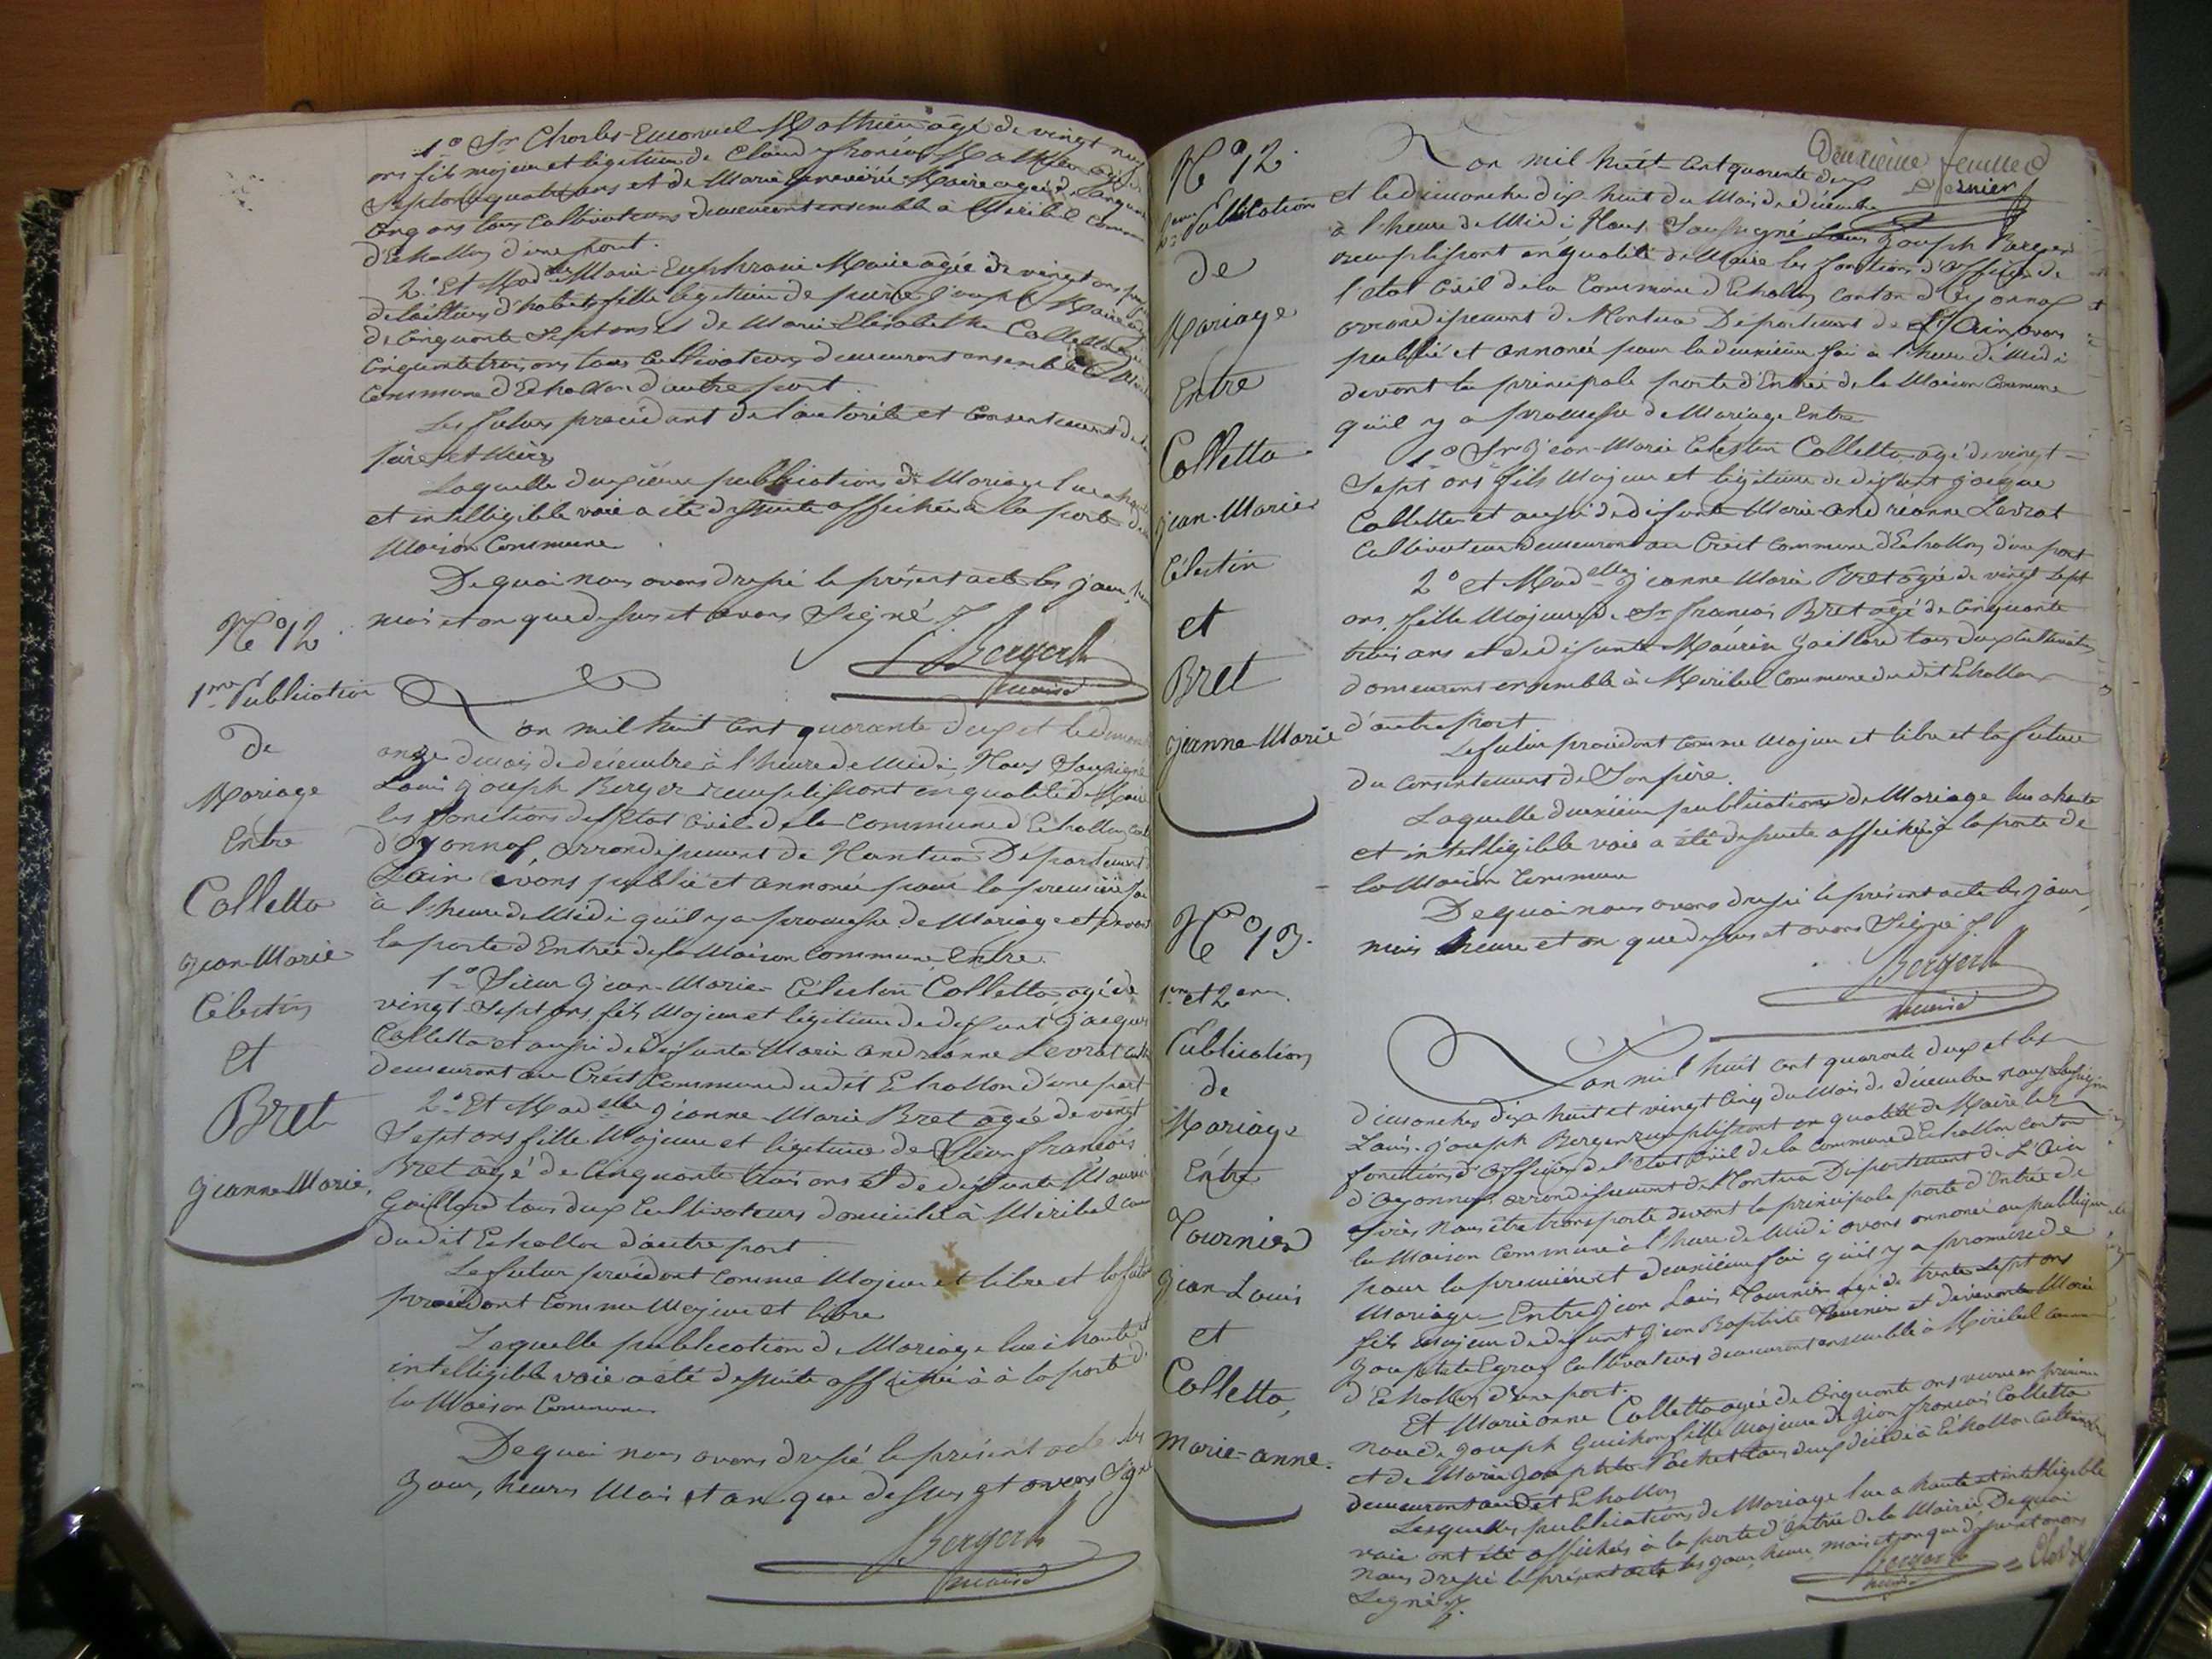 1º Sr Charles-Emanuel Mathieu âgé de vingt neuf
ans fils majeur et légitime de Claude françois Mathieu âgé de
Septante quatre ans et de Marie Genevieve Maire agée de Cinquante
Cinq ans tous Cultivateurs demeurant ensemble à Miribel Commune
d'Echallon d'une part.
2º Et Madelle Marie-Euphrasie Maire âgée de vingt ans
fille légitime de pierre Joseph Maire
de Cinquante Sept ans et de Marie Elisabethe Colletta agée
Cinquante trois ans tous Cultivateurs demeurant ensemble à
Commune d'Echallon d'autre part.
Les futurs procédant de l'autorité et Consentement de
père et Mère
Laquelle deuxième publication de Mariage lue a haute
et intelligible voie a été desuite affichée à la porte de
Maison Commune
De quoi nous avons dressé le présent acte les jour,
mois et an que dessus et avons Signé
Berger
maire
Nº 12
1re Publication
de
Mariage
Entre
Colletta
jean-Marie
Célestin
et
Bret
jeanne Marie
L'an mil huit Cent quarante deux et le dimanche
onze du mois de décembre à l'heure de Midi, Nous Soussigné
Louis Joseph Berger remplissant en qualité de Maire
les fonctions de l'Etat Civil de la Commune d'Echallon
d'oyonnax, arrondissement de Nantua Département
L'ain avons publié et annoncé pour la première fois
à l'heure de Midi qu'il y a promesse de Mariage et devant
la porte d'Entrée de la Maison Commune Entre
1º Sieur Jean-Marie-Célestin Colletta agé de
vingt Sept ans fils Majeur et légitime de défunt Jacques
Colletta et aussi de défunte Marie andréanne Levrat
demeurant au Crêt Commune dudit Echallon d'une part
2º Et Madelle Jeanne Marie Bret âgée de vingt
Sept ans fille Majeure et légitime de Sieur françois
Bret âgé de Cinquante trois ans et de défunte
Gaillard tous deux Cultivateurs domicilié à Miribel
dudit Echallon d'autre part
Le futur procédant Comme Majeur et libre et la future
procédant Comme Majeure et libre
Laquelle publication de Mariage lue à haute et
intelligible voie a été desuite affichée à à la porte de
la Maison Commune
De quoi nous avons dressé le présent acte les
Jour, heure Mois et an que dessus et avons Signé
Berger
maire
Nº 12
Publication
de
Mariage
Entre
Colletta
jean-Marie
Célestin
et
Bret
jeanne Marie
Deuxième feuille
L'an mil huit-Cent quarante deux
et le dimanche dix huit du Mois de décembre
à l'heure de Midi Nous Soussigné Louis Joseph Berger
remplissant en qualité de Maire les fonctions d'officier de
l'état Civil de la Commune d'Echallon Canton d'Oyonnax
arrondissement de Nantua Département de L'Ain avons
publié et annoncé pour la deuxième foi à l'heure de Midi
devant la principale porte d'Entrée de la Maison Commune
qu'il y a promesse de Mariage Entre
1º Sr Jean-Marie Célestin Colletta agé de vingt-
Sept ans fils Majeur et légitime de défunt jacque
Colletta et aussi de défunte Marie-andréanne Levrat
Cultivateur demeurant au Crêt Commune d'Echallon d'une part
2º et Madelle jeanne Marie Bret âgée de vingt Sept
ans, fille Majeure de Sr françois Bret âgé de Cinquante
trois ans et de défunte Gaillard tous deux Cultivateurs
demeurant ensemble à Miribel Commune du dit Echallon
d'autre part
Le futur procédant Comme Majeur et libre et la future
du Consentement de Son père.
Laquelle deuxième publication de Mariage lue a haute
et intelligible voie a été desuite affichée à la porte de
la Maison Commune
De quoi nous avons dressé le présent acte les jour,
mois heure et an que dessus et avons Signé
Berger
maire
Nº 13.
1re et 2eme
Publication
de
Mariage
Entre
Tournier
Jean-Louis
et
Colletta,
marie-anne.
L'an mil huit Cent quarante deux et les
dimanches dix huit et vingt Cinq du Mois de décembre nous Soussigné
Louis-Joseph Berger remplissant en qualité de Maire les
fonctions d'officier de l'Etat Civil de la Commune d'Echallon Canton
d'Oyonnax arrondissement de Nantua Département de L'Ain
après nous être transporté devant la principale porte d'Entrée de
la Maison Commune à l'heure de Midi avons annoncé au publique
pour la première et deuxième foi qu'il y a promesse de
Mariage Entre Jean Louis Tournier agé de trente Sept ans
fils Majeur de défunt Jean Baptiste Tournier et de vivante Marie
Josephte Cultivateurs demeurant ensemble à Miribel Commune
d'Echallon d'une part.
Et Marianne Colletta agée de Cinquante ans veuve en première
noce de Joseph Guichon fille Majeure de Jean françois Colletta
et de Marie Josephte tous deux décédé à Echallon
demeurant audit Echallon
Lesquelles publications de Mariage lue a haute et intelligible
voie ont été affichées à la porte d'Entrée de la Mairie De quoi
nous dressé le présent acte les jour, heure, mois et an que dessus et avons
Signé
Berger
maire